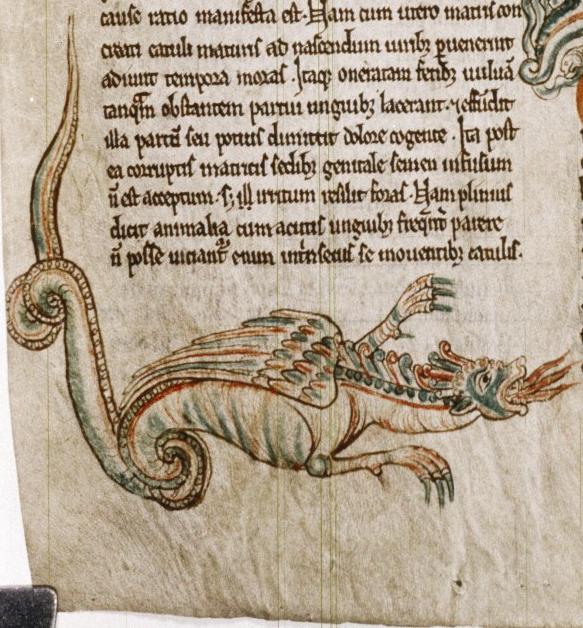 cause ratio manifesta est. Nam cum utero matris con
creati catuli maturis ad nascendum uiribꝫ ꝑuenerint
adiunt tempora moras. Itaqꝫ oneratam fetibꝫ uuluā
tanqͣm obstantem partui unguibꝫ lacerant. ⁊ effūdit
illa partū seu potius dimittit dolore cogente. Ita post
ea corruptis matricis sedibꝫ genitale semen infusum
n̄ est acceptum. sꝫ irritum resilit foras. Nam plinius
dicit animalia cum acutis unguibꝫ freqn̄t̄ parere
n̄ posse uiciant᷑ enim int̄nsecus se mouentibꝫ catulis.